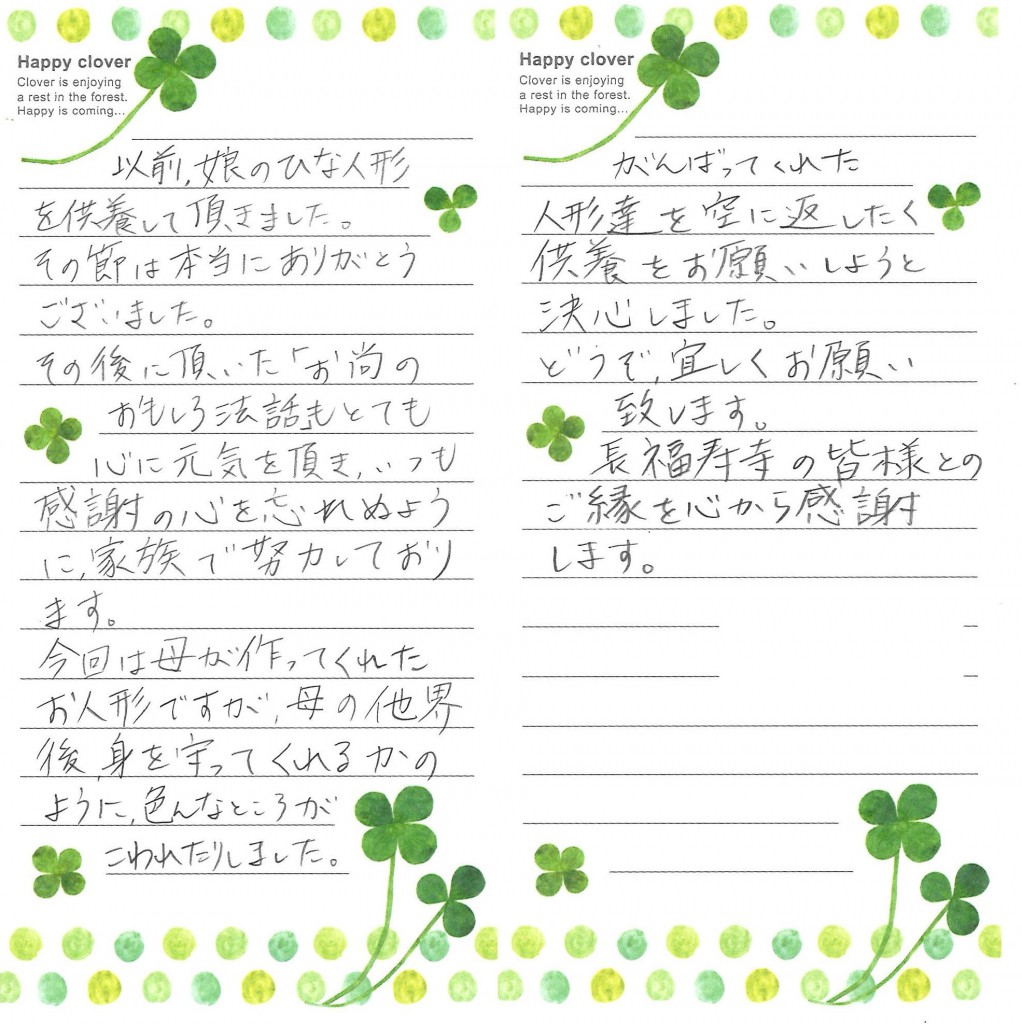 Happy clover
Clover is enjoying
a rest in the forest.
Happy is coming...
以前,娘のひな人形
を供養して頂きました。
その節は本当にありがとう
ございました。
その後に頂いた「お尚の
おもしろ法話」もとても
心に元気を頂き,いつも
感謝の心を忘れぬよう
に,家族で努力しており
ます。
今回は母が作ってくれた
お人形ですが,母の他界
後,身を守ってくれるかの
ように,色んなところが
こわれたりしました。
Happy clover
Clover is enjoying
a rest in the forest.
Happy is coming...
がんばってくれた
人形達を空に返したく
供養をお願いしようと
決心しました。
どうぞ,宜しくお願い
致します。
長福寿寺の皆様との
ご縁を心から感謝
します。